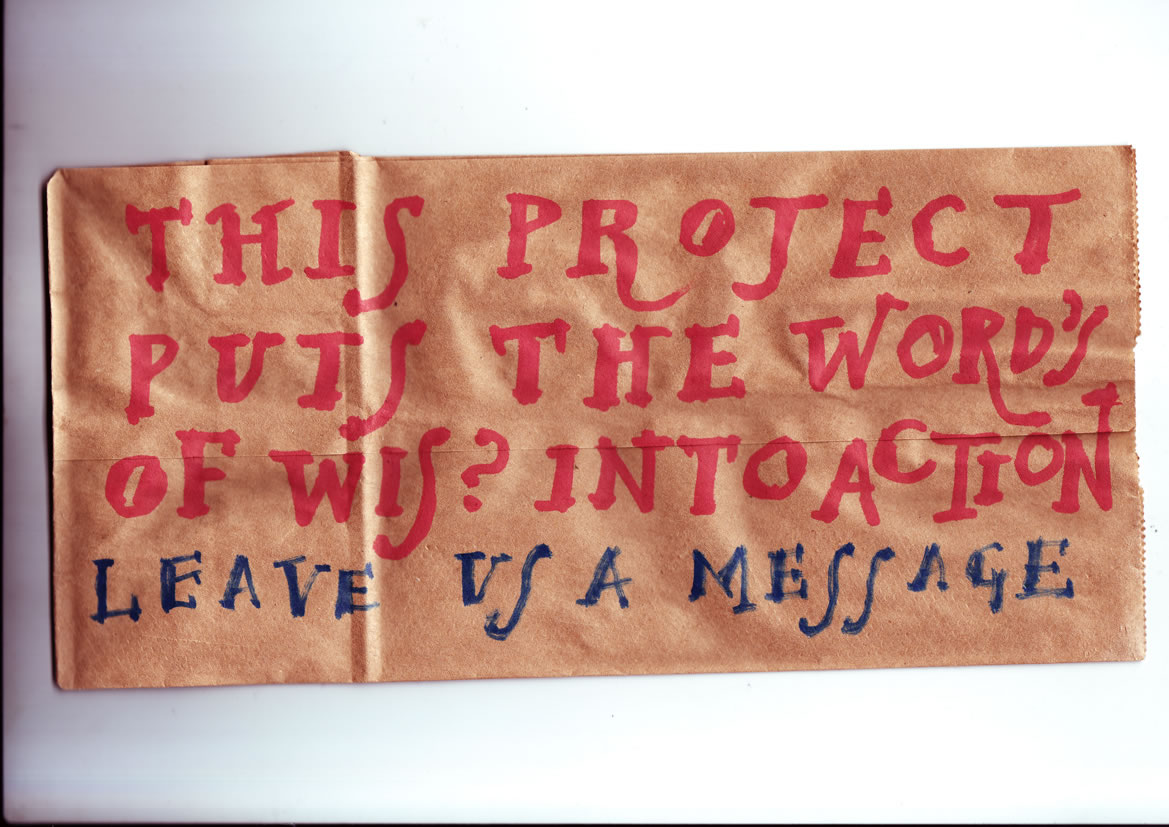 THIS PROJECT
PUTS THE WORD'S
OF WIS? INTO ACTION
LEAVE US A MESSAGE